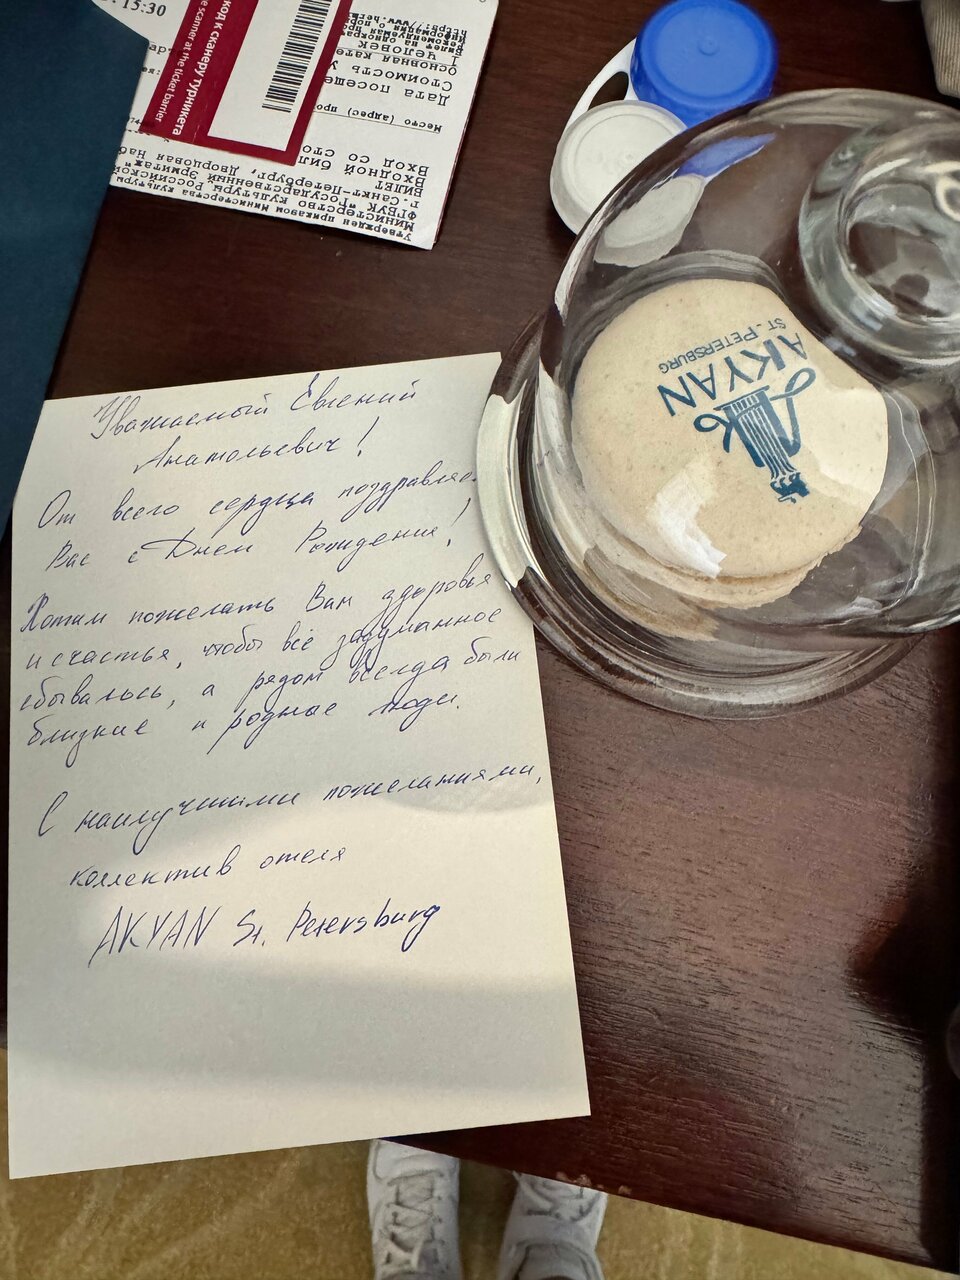 Уважаемый Евгений
Анатольевич!
От всего сердца поздравляем
Вас с Днем Рождения!
Хотим пожелать Вам здоровья
и счастья, чтобы всё задуманное
сбывалось, а рядом всегда были
близкие и родные люди.
С наилучшими пожеланиями,
коллектив отеля
AKYAN St. Petersburg
AKYAN
ST. PETERSBURG
15:30
код к сканеру турникета
e scanner at the ticket barrier
Утвержден приказом Министерства культуры
Министерство культуры Российской
ФГБУК "Государственный Эрмитаж"
г. Санкт-Петербург, Дворцовая наб
БИЛЕТ
Входной бил
Вход со сто
Место (адрес) про
Дата посеще
Стоимость у
Основная кате
1 человек